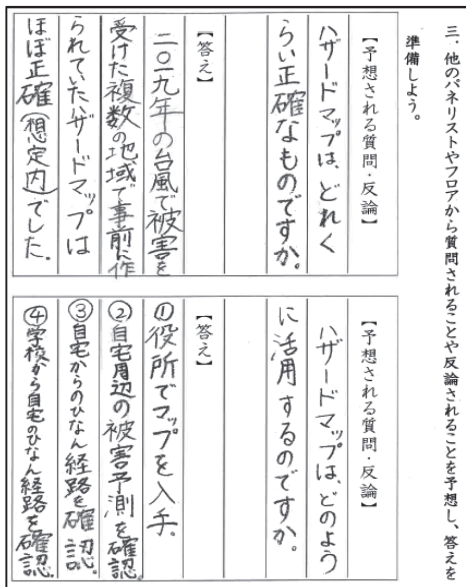 三．他のパネリストやフロアから質問されることや反論されることを予想し、答えを
準備しよう。
【予想される質問・反論】
ハザードマップは、どれく
らい正確なものですか。
【答え】
二〇一九年の台風で被害を
受けた複数の地域で事前に作
られていたハザードマップは
ほぼ正確(想定内)でした。
【予想される質問・反論】
ハザードマップは、どのよう
に活用するのですか。
【答え】
①役所でマップを入手。
②自宅周辺の被害予測を確認。
③自宅からのひなん経路を確認。
④学校から自宅のひなん経路を確認